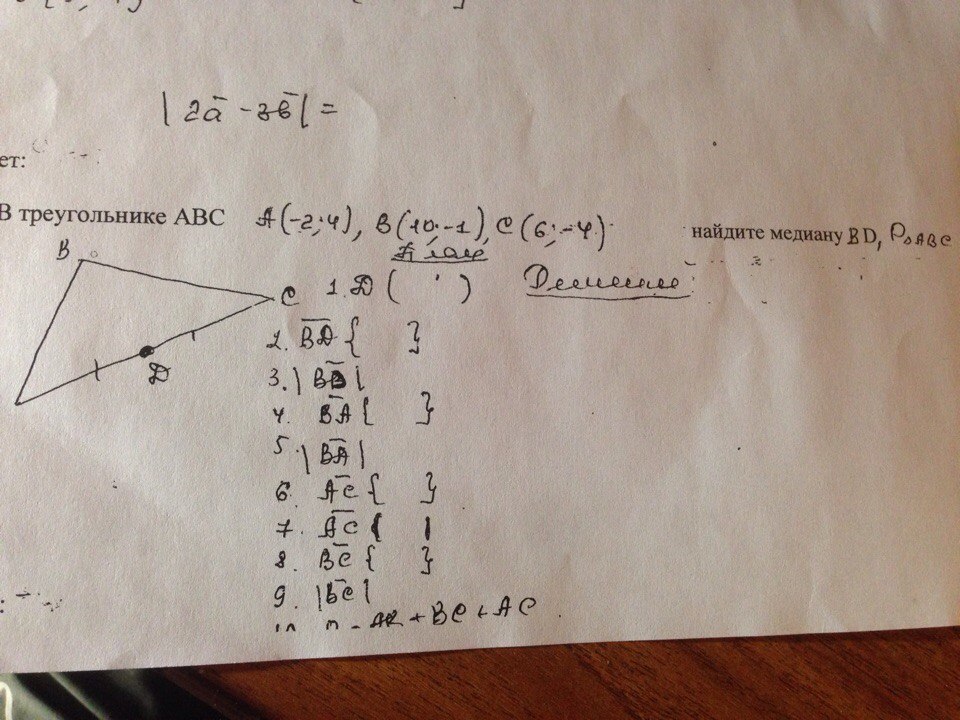 |2a̅ - 3b̅| =
ет:
В треугольнике АВС А(-2;4), В(10;-1), С(6;-4) найдите медиану BD, P△ABC
План
Решение:
B
C
D
1. D ( ; )
2. B̅D̅ { }
3. |B̅D̅|
4. B̅A̅ { }
5. |B̅A̅|
6. A̅C̅ { }
7. A̅C̅ | |
8. B̅C̅ { }
9. |B̅C̅|
+ BC + AC